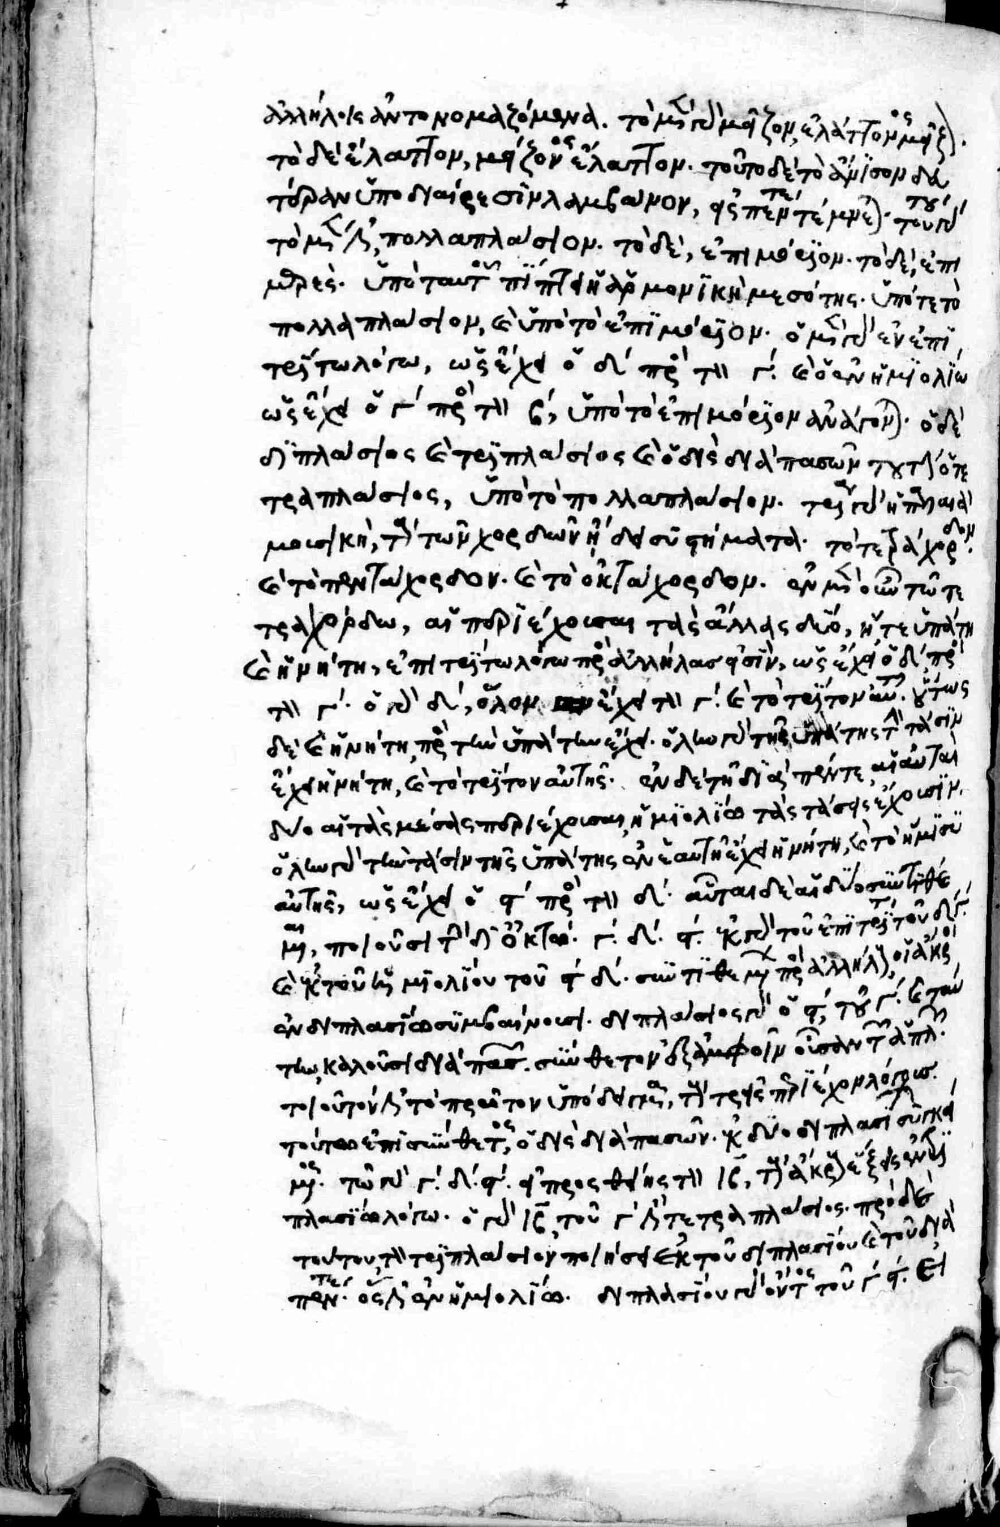 ἀλλήλοις ἀντονομαζόμενα. τὸ μὲν γὰρ μεῖζον, ἐλάττονος μεῖζον.
τὸ δὲ ἔλαττον, μείζονος ἔλαττον. τοῦτο δὲ τὸ ἄνισον δευ
τέραν ὑποδιαίρεσιν λαμβάνον, εἰς πέντε τέμνεται. τούτου γὰρ
τὸ μέν ἐστι, πολλαπλάσιον. τὸ δὲ, ἐπιμόριον. τὸ δὲ, ἐπι
μερές. ὑπὸ ταῦτ οὖν πίπτει ἡ ἁρμονικὴ μεσότης. ὑπό τε τὸ
πολλαπλάσιον, καὶ ὑπὸ τὸ ἐπιμόριον. ὁ μὲν γὰρ ἐν ἐπι
τρίτω λόγω, ὡς ἔχει ὁ δ΄ πρὸς τὸν γ΄. καὶ ὁ ἐν ἡμιολίω
ὡς ἔχει ὁ γ΄ πρὸς τὸν β΄, ὑπὸ τὸ ἐπιμόριον ἀνάγονται. ὁ δὲ
διπλάσιος καὶ τριπλάσιος καὶ ὁ δὶς διὰ πασῶν τουτέστιν ὁ τε
τραπλάσιος, ὑπὸ τὸ πολλαπλάσιον. τρία γὰρ ἡ παλαιὰ
μουσικὴ, τὰ τῶν χορδῶν ἤδει συστήματα. τὸ τετράχορδον.
καὶ τὸ πεντάχορδον. καὶ τὸ ὀκτάχορδον. ἐν μὲν οὖν τῶ τε
τραχόρδω, αἱ περιέχουσαι τὰς ἄλλας δύο, ἥ τε ὑπάτη
καὶ ἡ νήτη, ἐπιτρίτω λόγω πρὸς ἀλλήλας εἰσὶν, ὡς ἔχει ὁ δ΄ πρὸς
τὸν γ΄. ὁ γὰρ δ΄, ὅλον ἔχει τὸν γ΄. καὶ τὸ τρίτον αὐτοῦ. οὕτως
δὲ καὶ ἡ νήτη, πρὸς τὴν ὑπάτην ἔχει. ὅλην γὰρ τῆς ὑπάτης τὴν τάσιν
ἔχει ἡ νήτη, καὶ τὸ τρίτον αὐτῆς. ἐν δὲ τῆ διὰ πέντε, αἱ αὐταὶ
δύο αἱ τὰς μέσας περιέχουσαι, ἡμιολίω τὰς τάσεις ἔχουσιν.
ὅλην γὰρ τὴν τάσιν τῆς ὑπάτης ἐν ἑαυτῆ ἔχει ἡ νήτη, καὶ τὸ ἥμισυ
αὐτῆς, ὡς ἔχει ὁ ϛ΄ πρὸς τὸν δ΄. αὗται δὲ αἱ δύο συντιθέ
μεναι, ποιοῦσι τὴν δι ὀκτώ. γ΄. δ΄. ϛ΄. ἐκ γὰρ τοῦ ἐπιτρίτου δ΄ γ΄.
καὶ ἐκ τοῦ ἡμιολίου τοῦ ϛ΄ δ΄. συντιθεμένων πρὸς ἀλλήλους, οἱ ἄκροι
ἐν διπλασίω συμβαίνουσι. διπλάσιος γὰρ ὁ ϛ΄, τοῦ γ΄. καὶ ταύ
την καλοῦσι διὰ πασῶν. σύνθετον ἐξ ἀμφοῖν οὖσαν τῶν ἁπλῶν.
τοιοῦτόν ἐστι τὸ πρῶτον ὑπόδειγμα, τὸ τρεῖς περιέχον λόγους.
τούτω ἐπισύνθετος, ὁ δὶς διὰ πασῶν. ἐκ δύο διπλασίων συγκεί
μενος. τῶ γὰρ γ΄. δ΄. ϛ΄. εἰ προσθείης τὸν ιβ, τὸν ἄκρον εὑρήσεις ἐν δι
πλασίω λόγω. ὁ γὰρ ιβ, τοῦ γ΄ ἐστὶ τετραπλάσιος. πρὸ δὲ
τούτου, τὸν τριπλάσιον ποιήσει ἐκ τοῦ διπλασίου καὶ τοῦ διὰ
πέντε. ὅς ἐστιν ἐν ἡμιολίω. διπλασίου γὰρ ὄντος τοῦ γ΄ ϛ΄. εἰ